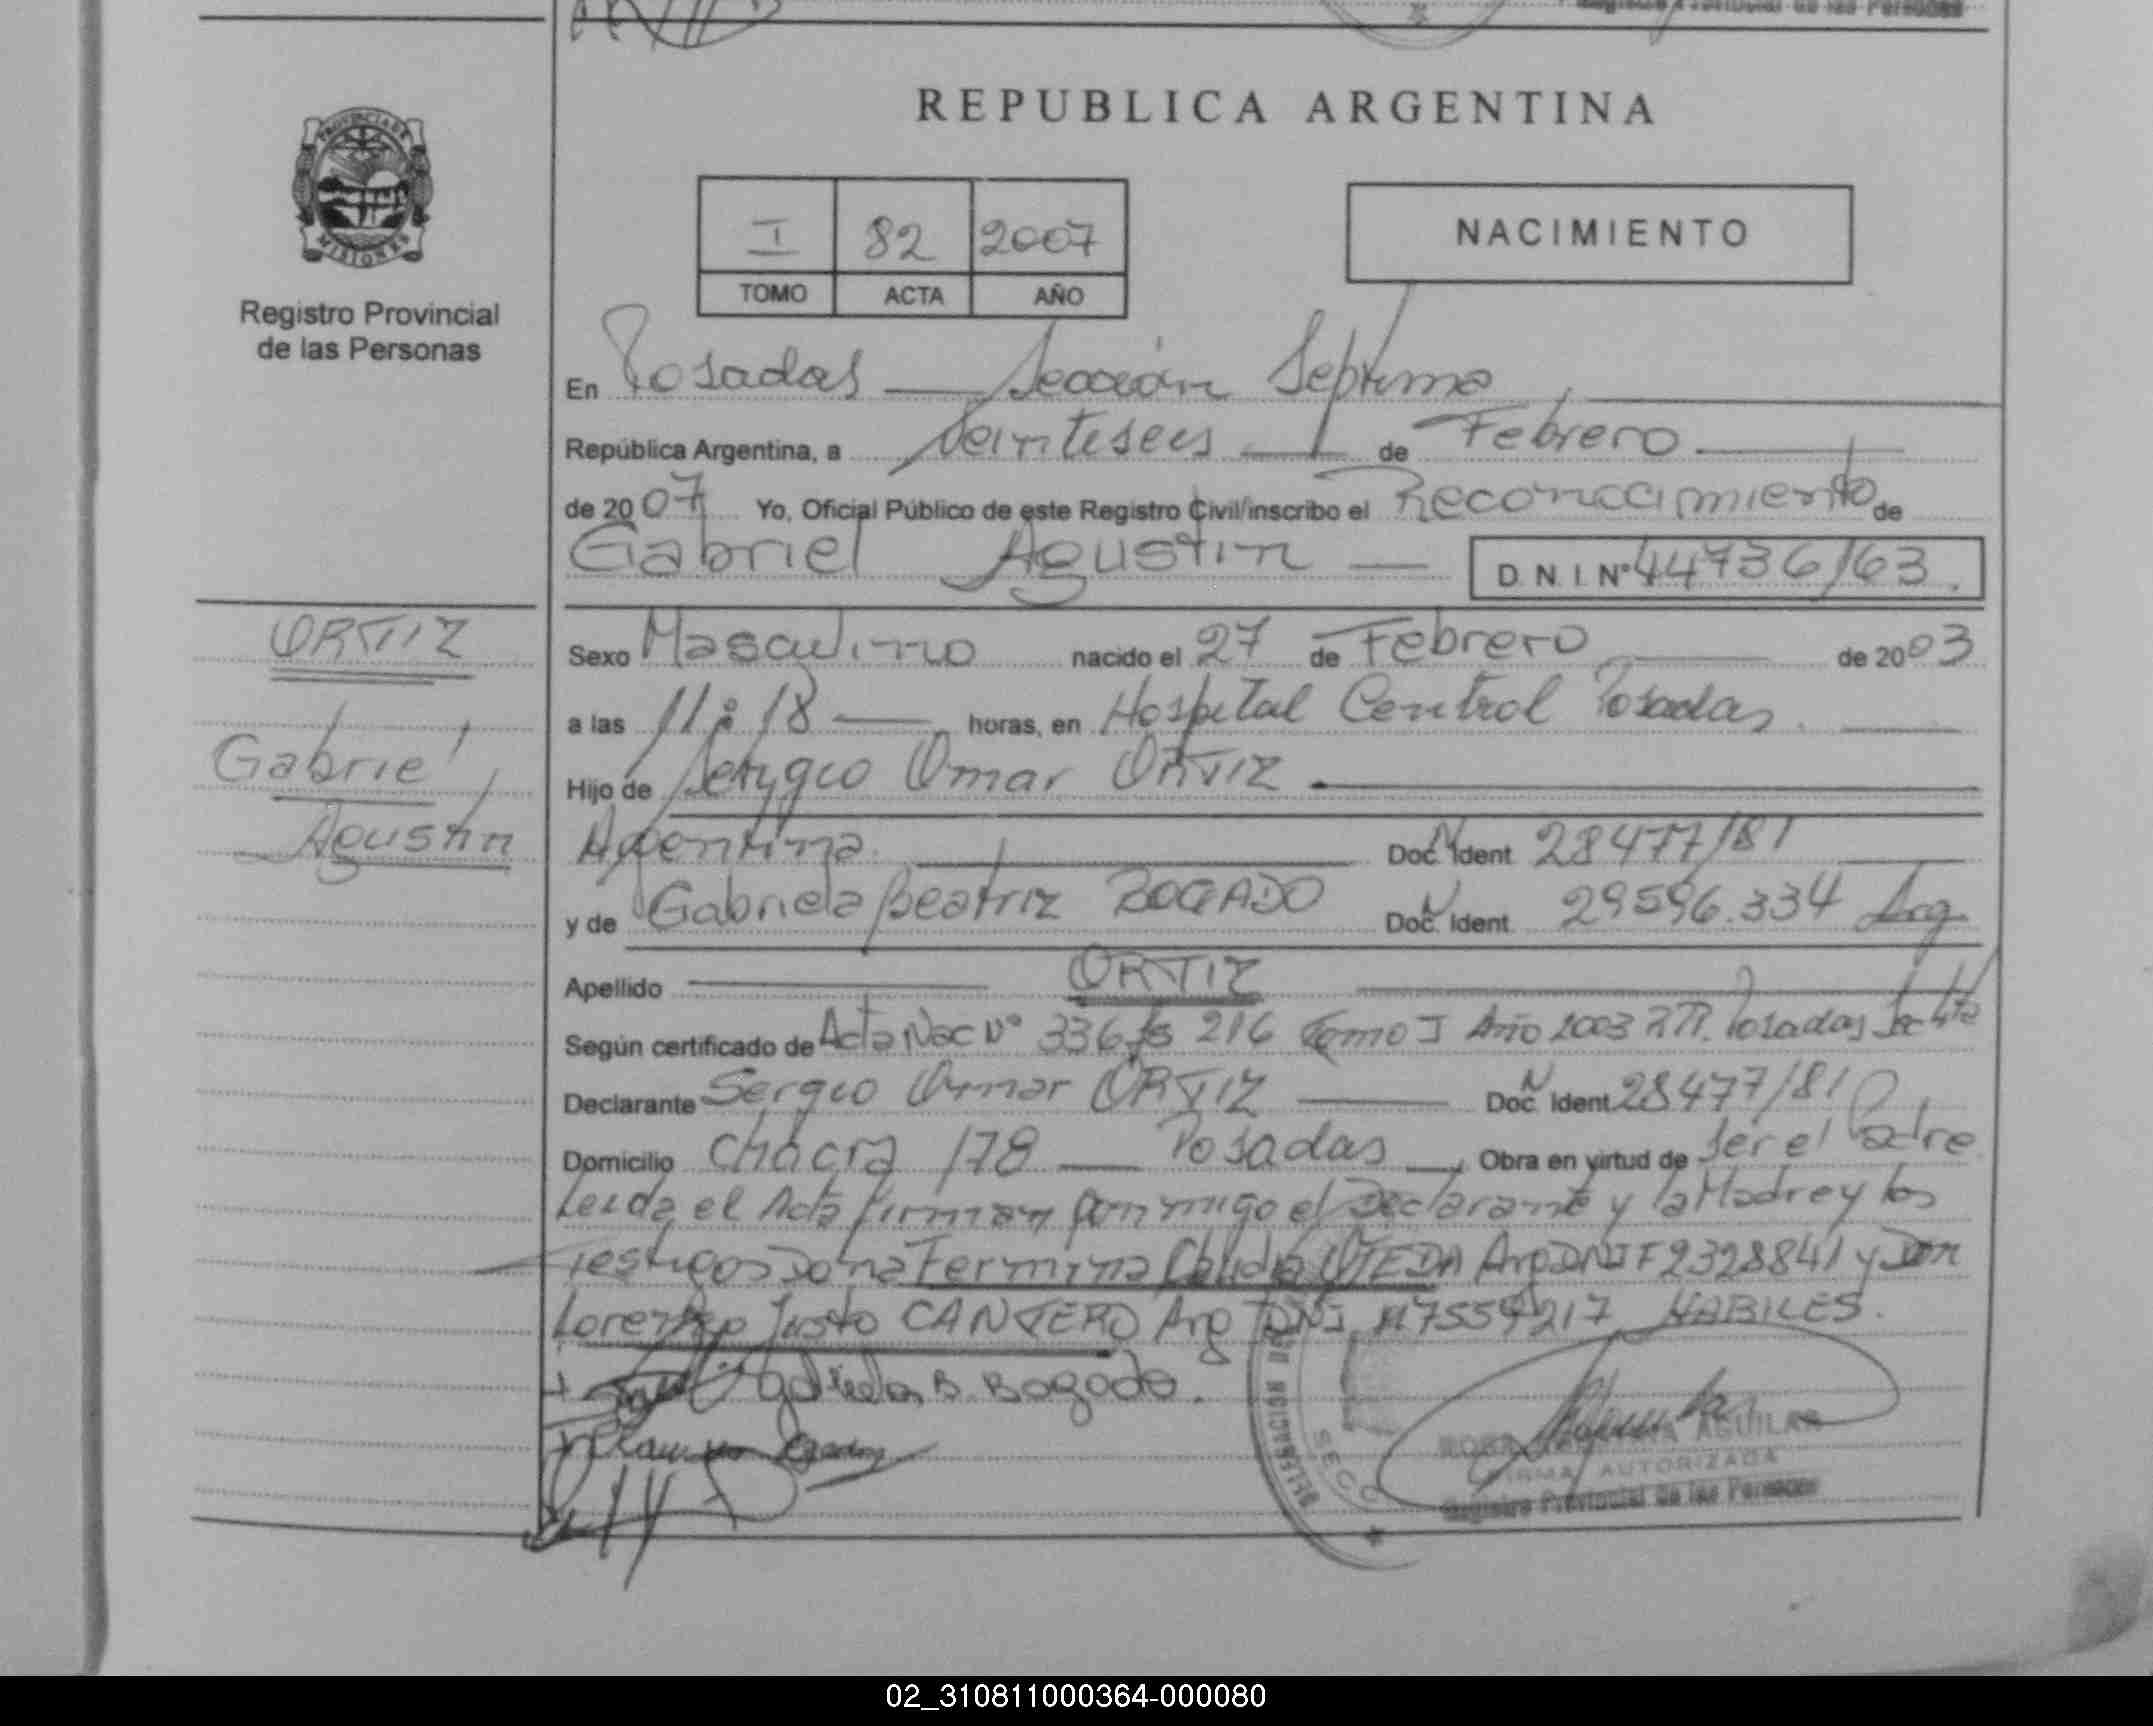 Registro Provincial de las Personas
REPUBLICA ARGENTINA
PROVINCIA DE
MISIONES
Registro Provincial
de las Personas
I 82 2007
TOMO ACTA AÑO
NACIMIENTO
En Posadas — Sección Septima
República Argentina, a Veintiseis — de Febrero
de 2007 Yo, Oficial Público de este Registro Civil/inscribo el Reconocimiento de
Gabriel Agustin — D.N.I. Nº 44736163.
ORTIZ
Gabriel
Agustin
Sexo Masculino nacido el 27 de Febrero de 2003
a las 11:18 — horas, en Hospital Central Posadas.
Hijo de Sergio Omar ORTIZ
Argentina. Doc. N Ident 28477181
y de Gabriela Beatriz BOGADO Doc. N Ident. 29596.334 Arg
Apellido ORTIZ
Según certificado de Acta Nac Nº 336 fs 216 Tomo I Año 2003 Posadas Sec 4ta
Declarante Sergio Omar ORTIZ — Doc. N Ident 28477181
Domicilio Chacra 178 — Posadas —, Obra en virtud de Ser el Padre
Leida el Acta firman Conmigo el Declarante y la Madre y los
Testigos Doña Fermina OJEDA Arg DNI F2328841 y Don
Lorenzo Justo CANTERO Arg DNI M7559217 HABILES.
Gabriela B. Bogado.
SECC
AGUILAR
FIRMA AUTORIZADA
Registro Provincial de las Personas
02_310811000364-000080